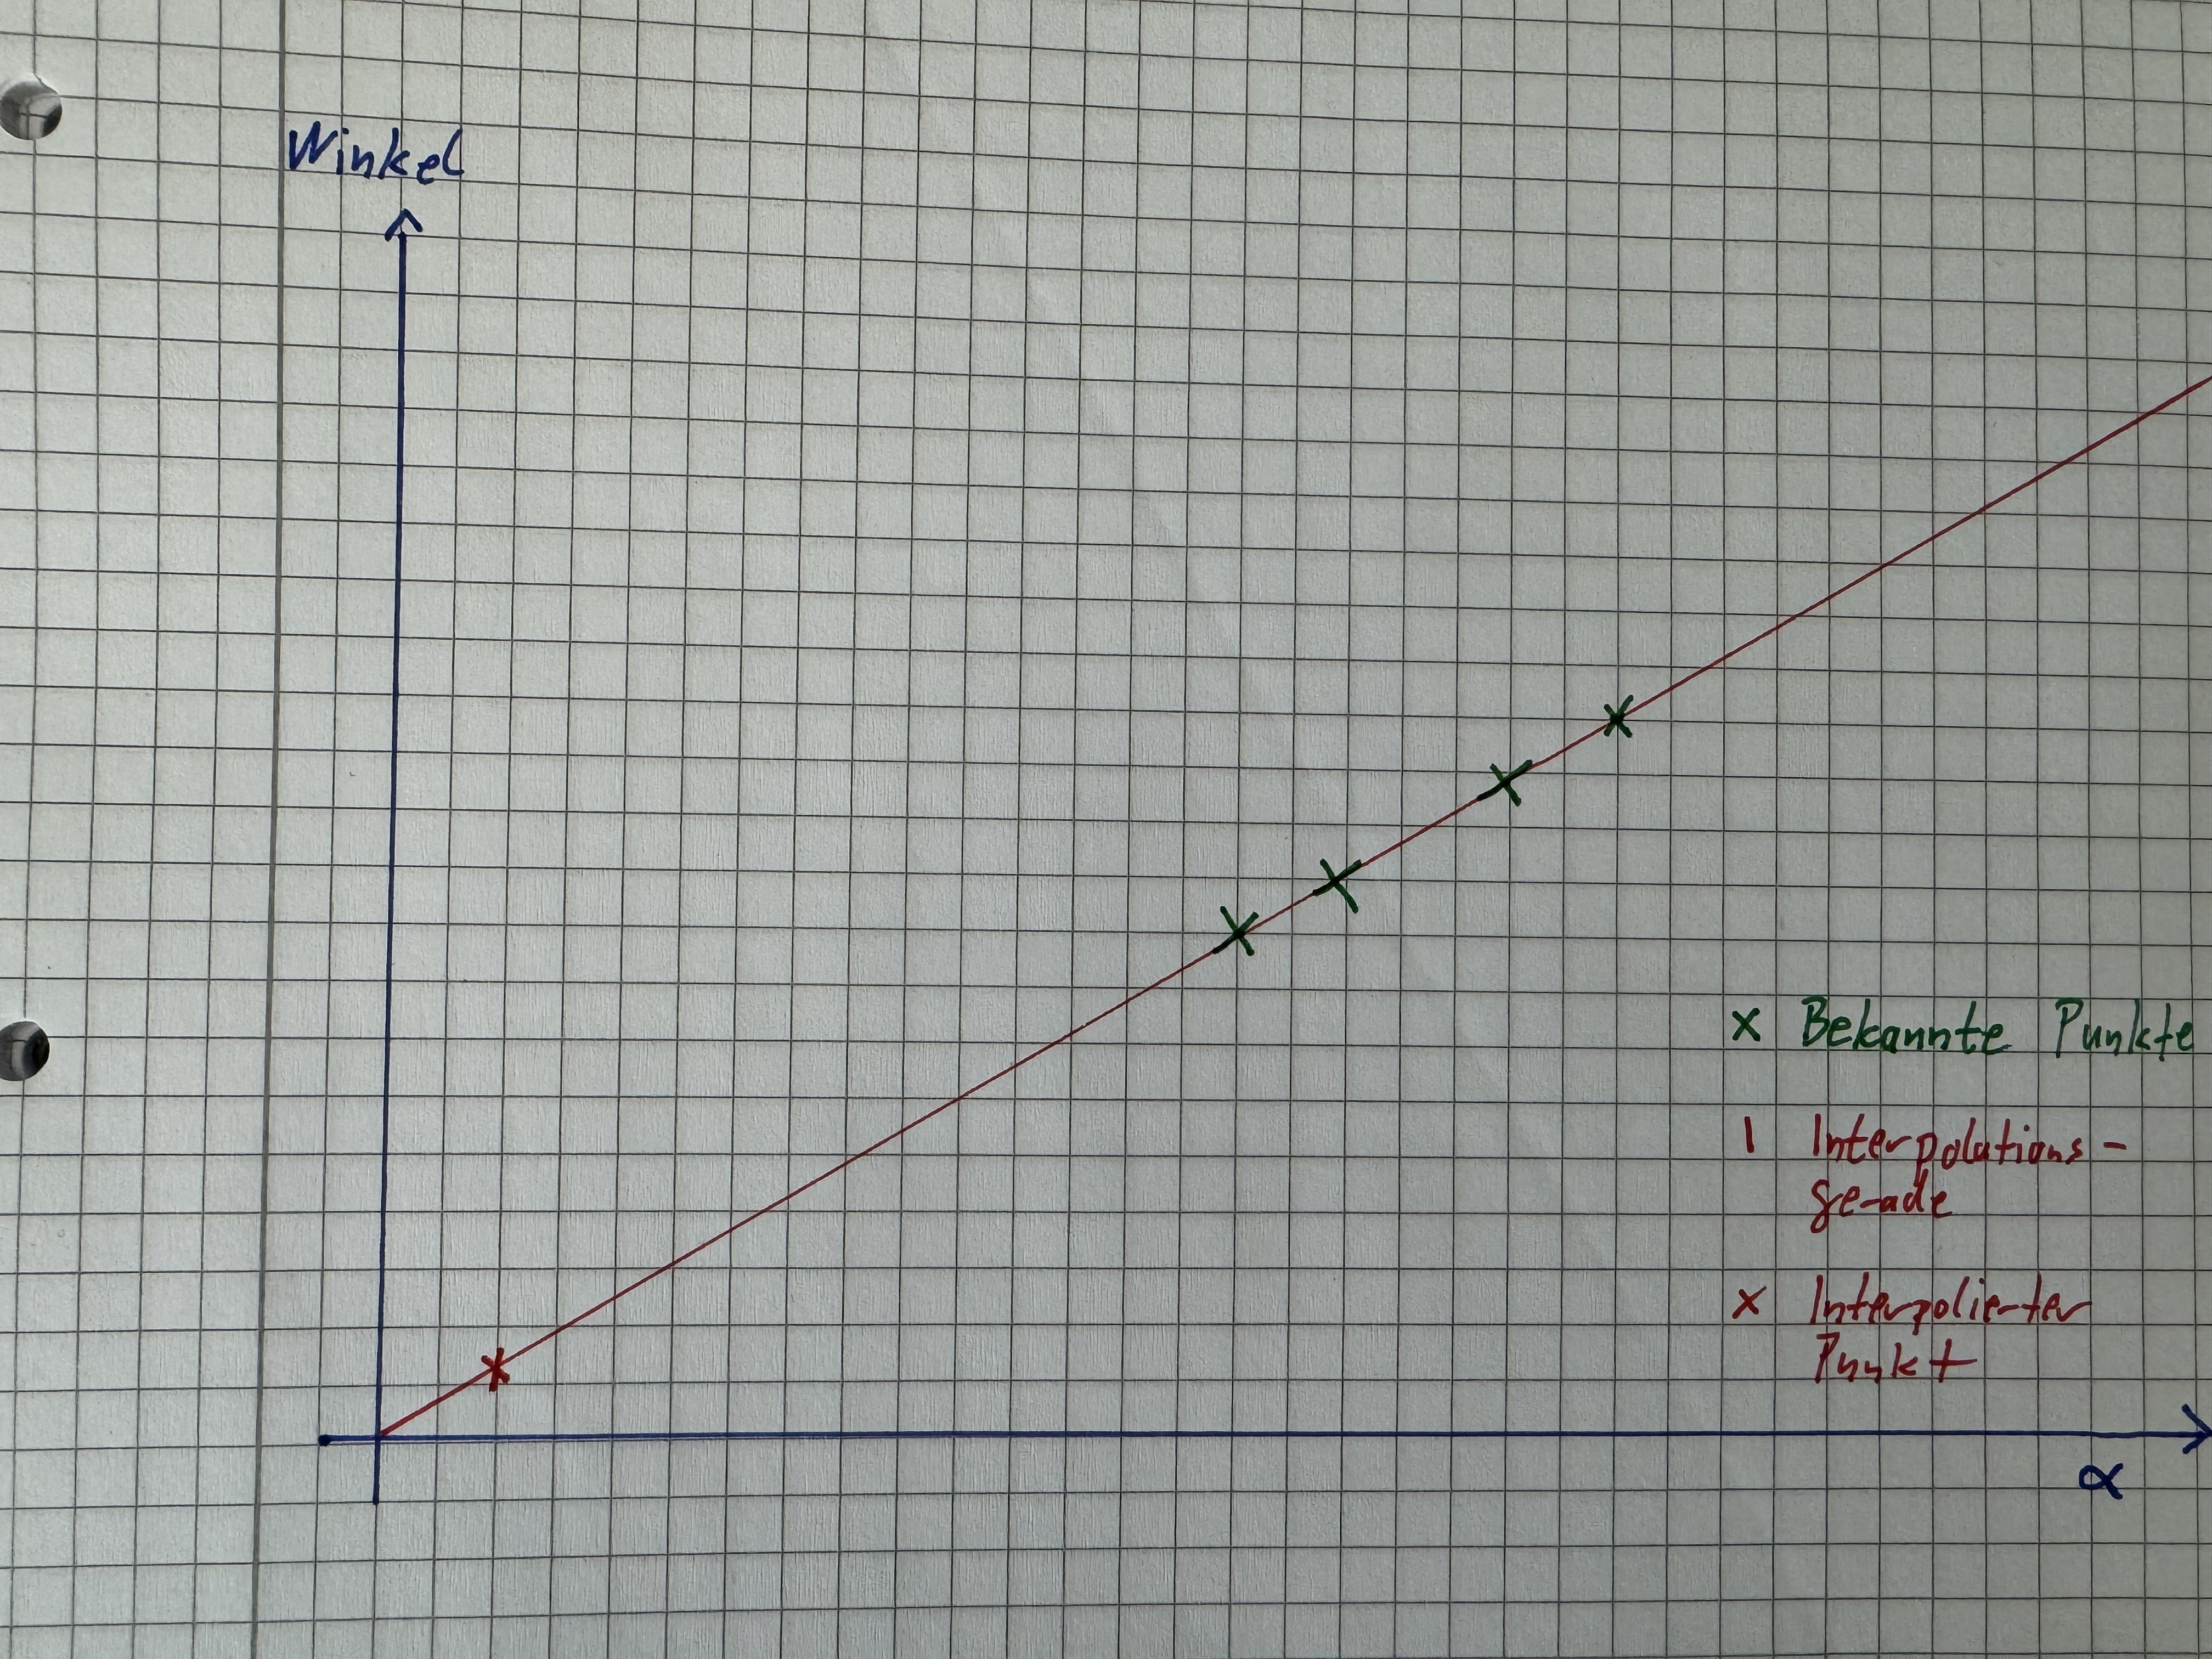 Winkel
x Bekannte Punkte
| Interpolations-
gerade
x Interpolierter
Punkt
α